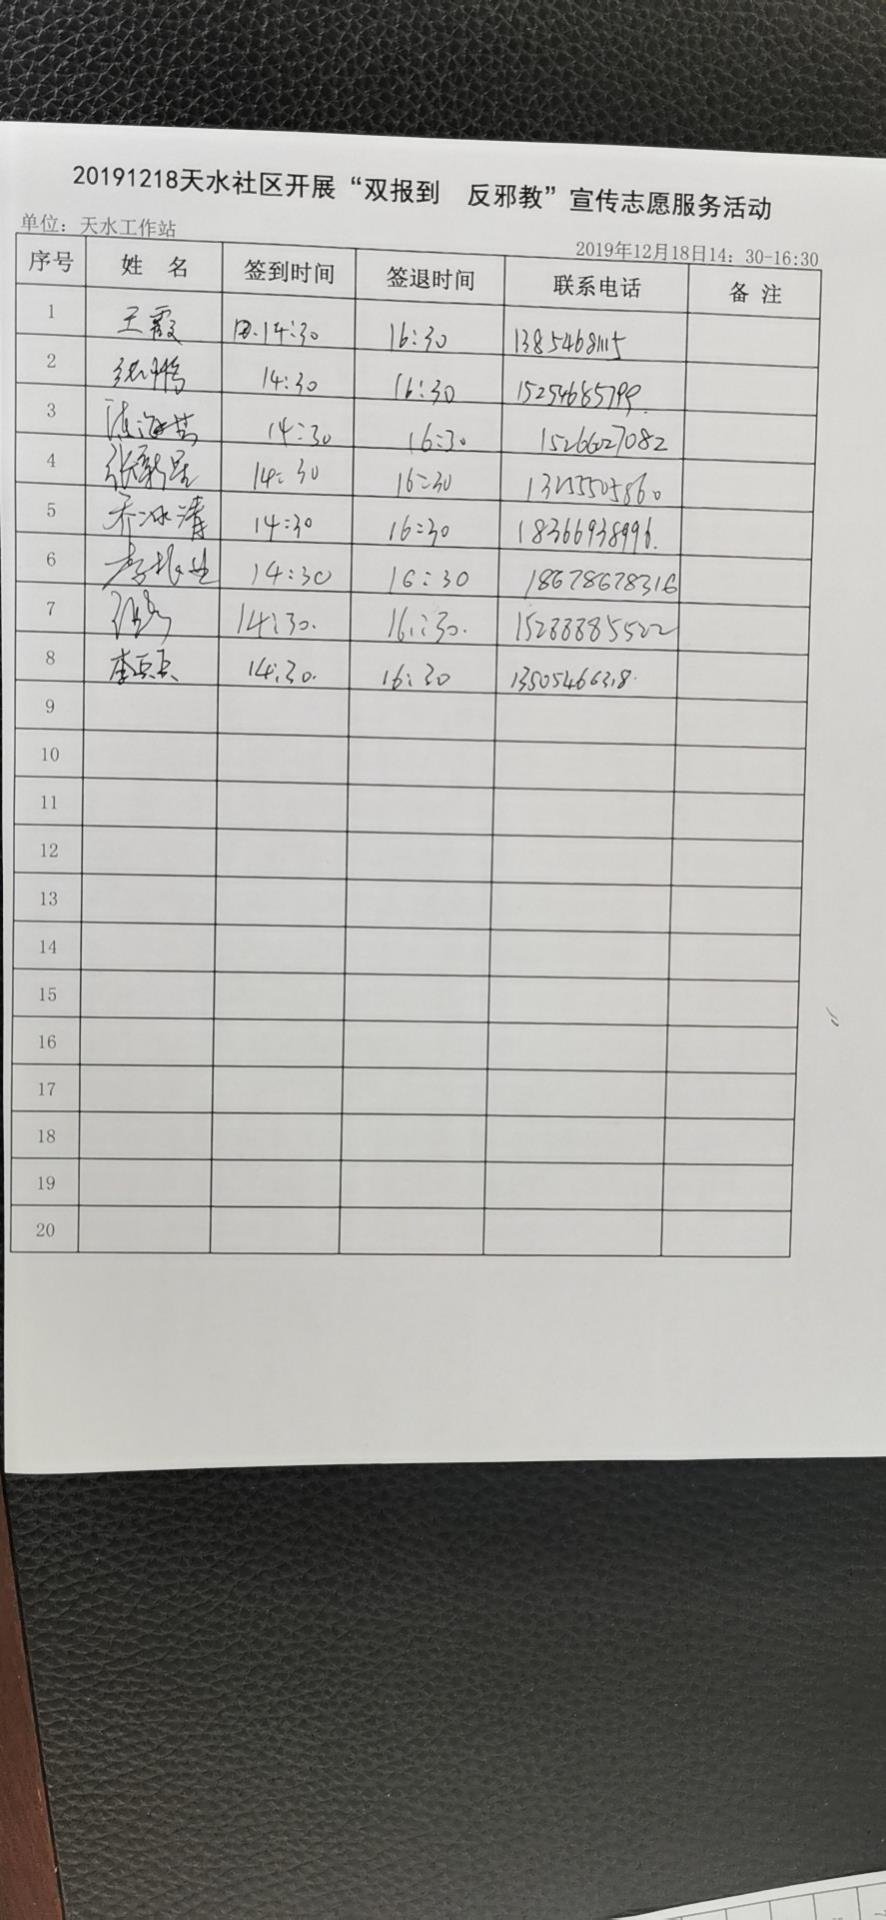 20191218天水社区开展“双报到 反邪教”宣传志愿服务活动
单位：天水工作站
2019年12月18日14：30-16:30
序号 姓 名 签到时间 签退时间 联系电话 备 注
1 王霞 14:30 16:30
2 14:30 16:30 15254685799
3 14:30 16:30 15266027082
4 张新星 14:30 16:30
5 乔冰清 14:30 16:30 18366938996
6 14:30 16:30 18678678316
7 14:30. 16:30. 15288885522
8 李兵兵 14:30. 16:30 13505466318
9
10
11
12
13
14
15
16
17
18
19
20